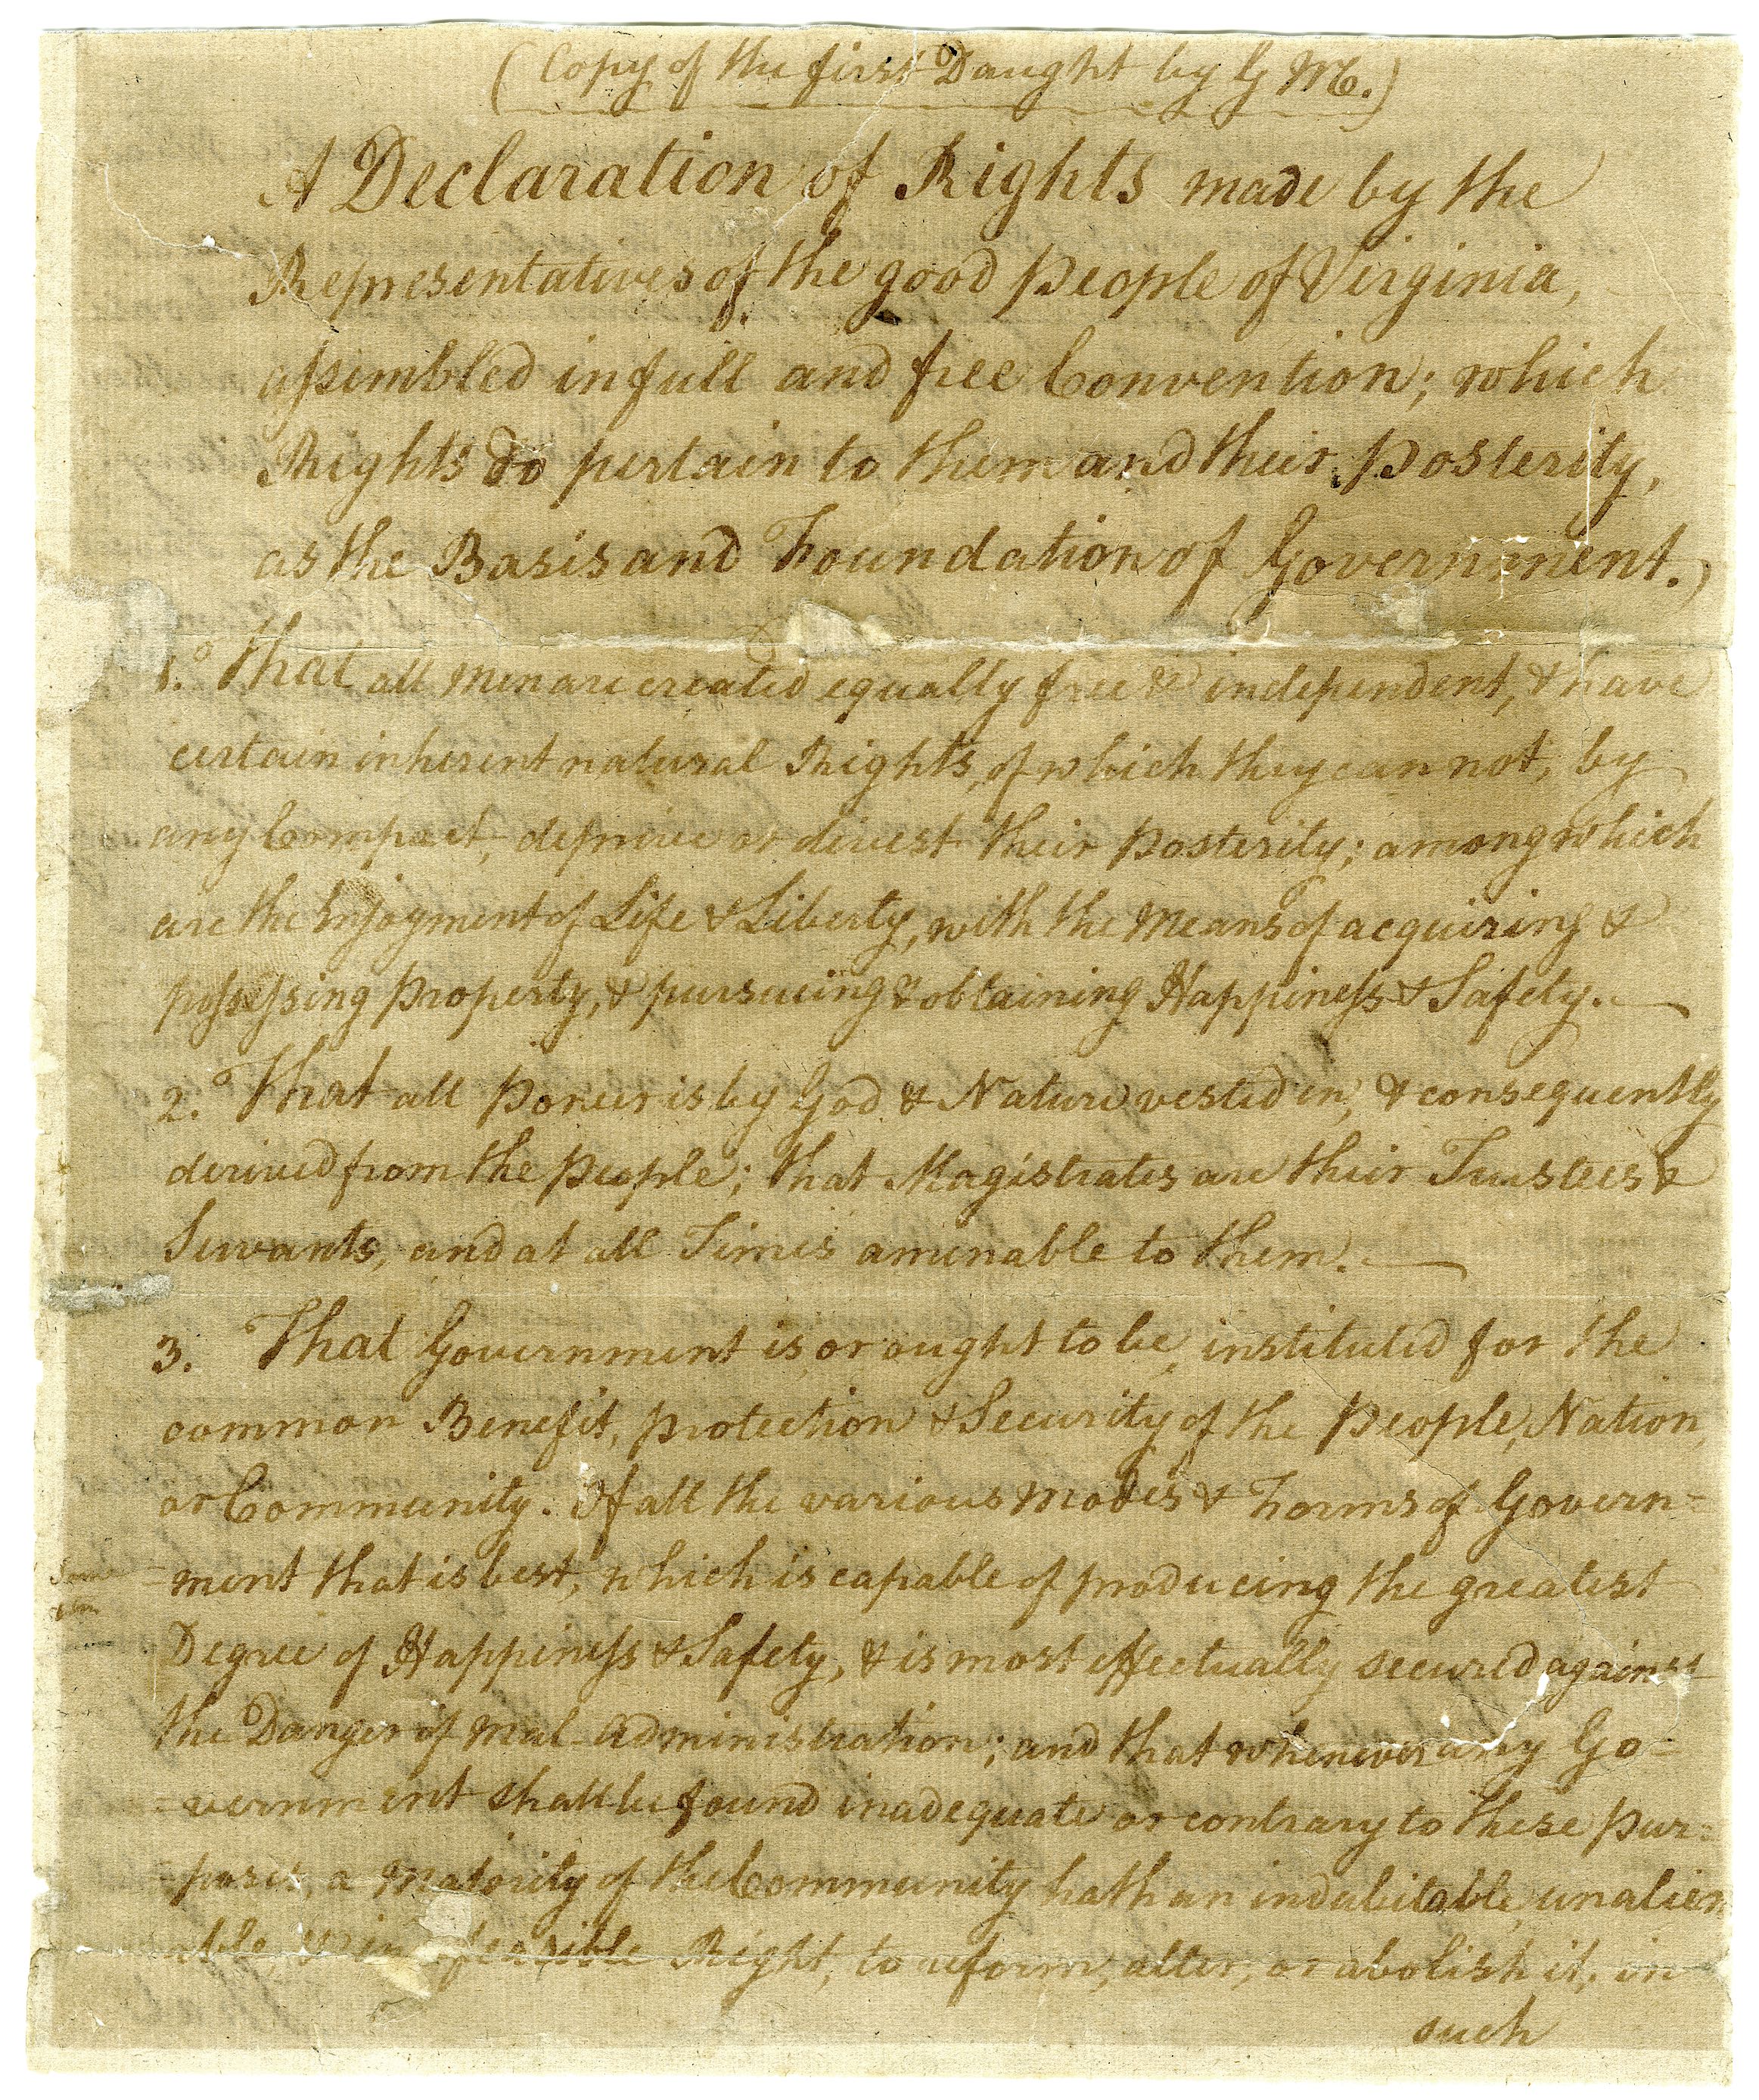 (Copy of the first Daught by G M.)
A Declaration of Rights made by the
Representatives of the good people of Virginia,
assembled in full and free Convention; which
Rights do pertain to them and their posterity,
as the Basis and Foundation of Government.)
1.o That all men are created equally free & independent, & have
certain inherent natural Rights, of which they can not, by
any Compact, deprive or divest their posterity; among which
are the Enjoyment of Life & Liberty, with the Means of acquiring &
possessing property, & pursueing & obtaining Happiness & Safety.
2. That all power is by God & Nature vested in, & consequently
derived from the people; that Magistrates are their Trustees &
Servants, and at all Times amenable to them.
3. That Government is, or ought to be, instituted for the
common Benefit, protection & Security of the people, Nation,
or Community. Of all the various modes & Forms of Govern=
=ment that is best, which is capable of producing the greatest
Degree of Happiness & Safety, & is most effectually secured against
the Danger of mal-administration; and that whenever any Go=
=vernment shall be found inadequate or contrary to these pur=
=poses, a majority of the Community hath an indubitable, unalien
able, & Right, to reform, alter, or abolish it, in
such